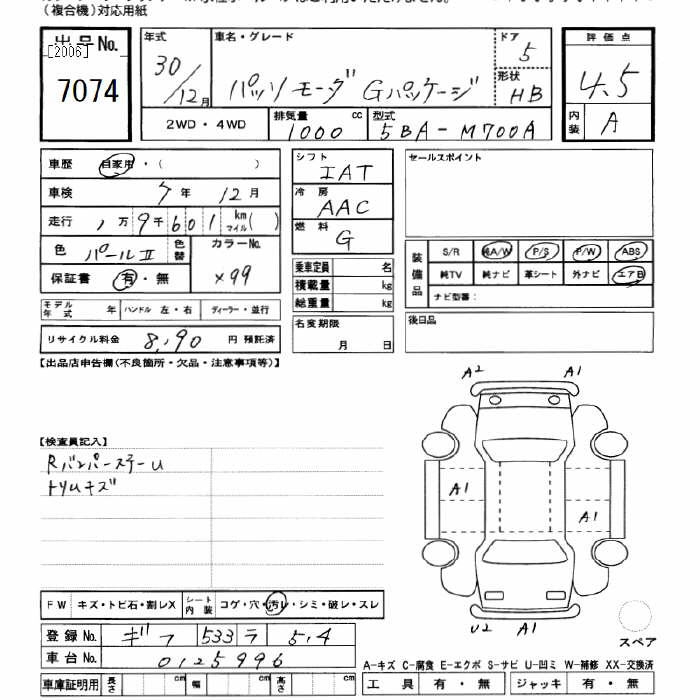 (複合機)対応用紙
出品No.
[2006]
7074
年式
30/12月
車名・グレード
パッソ モーダ Gパッケージ
ドア
5
形状
HB
評価点
4.5
内装
A
2WD・4WD
排気量 cc
1000
型式
5BA-M700A
車歴 自家用・( )
車検 7年 12月
走行 1万9千601 km マイル( )
色 パールⅡ 色替 カラーNo.
×99
保証書 有・無
モデル年式 年 ハンドル 左・右 ディーラー・並行
リサイクル料金 8,190 円 預託済
シフト
IAT
冷房
AAC
燃料
G
乗車定員 名
積載量 kg
総重量 kg
名変期限
月 日
セールスポイント
装備品
S/R 純A/W P/S P/W ABS
純TV 純ナビ 革シート 外ナビ エアB
ナビ型番:
後日品
【出品店申告欄(不良箇所・欠品・注意事項等)】
【検査員記入】
RバンパーステーU
トリムキズ
A2 A1
A1
A1
U2 A1
スペア
FW キズ・トビ石・割レX シート内装 コゲ・穴・汚レ・シミ・破レ・スレ
登録No. ギフ 533 ラ 5,4
車台No. 0125996
車庫証明用 長さ cm 幅 cm 高さ cm
A-キズ C-腐食 E-エクボ S-サビ U-凹ミ W-補修 XX-交換済
工具 有・無 ジャッキ 有・無